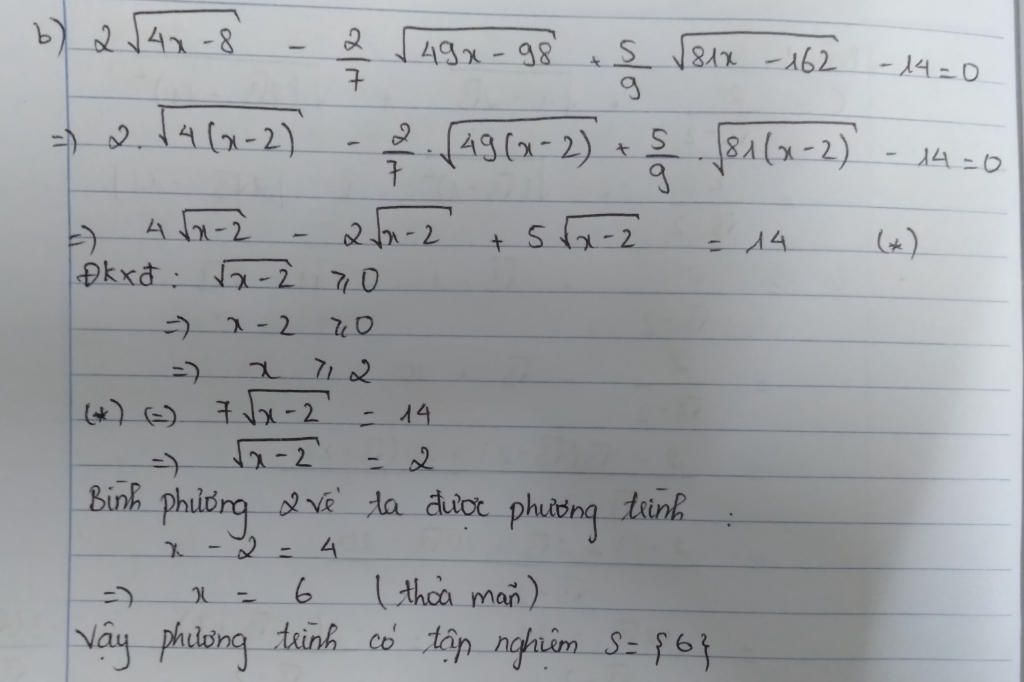 b) 2√(4x-8) - 2/7 √(49x-98) + 5/9 √(81x-162) - 14=0
=> 2.√(4(x-2)) - 2/7 .√(49(x-2)) + 5/9 .√(81(x-2)) - 14=0
=> 4√(x-2) - 2√(x-2) + 5√(x-2) = 14 (*)
Đkxđ: √(x-2) ⩾0
=> x-2 ⩾0
=> x ⩾ 2
(*) (=) 7√(x-2) = 14
=> √(x-2) = 2
Bình phương 2 vế ta được phương trình :
x - 2 = 4
=> x = 6 (thỏa mãn)
Vậy phương trình có tập nghiệm S= {6}